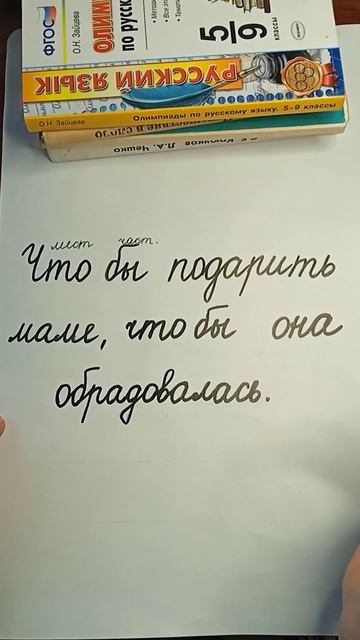 ФГОС
О.Н. Зайцева
ОЛИМ
по русск
• Методи
• Все эта
• Темати
5/9
классы
РУССКИЙ ЯЗЫК
О.Н. Зайцева
Олимпиады по русскому языку. 5-9 классы
Л.А. Чешко
мест част.
Что бы подарить
маме, что бы она
обрадовалась.